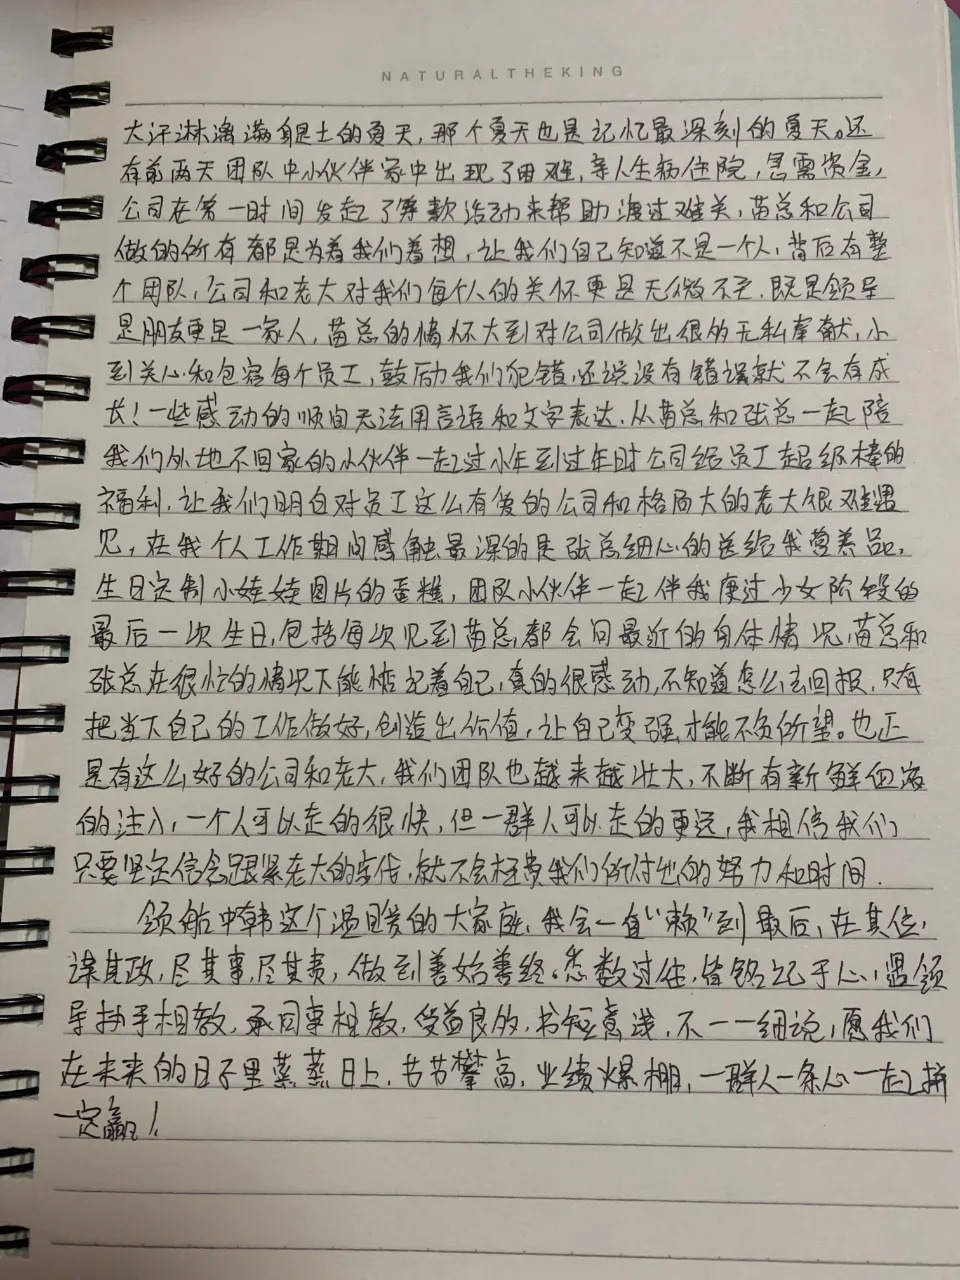 NATURALTHEKING
大汗淋漓满身是土的夏天,那个夏天也是记忆最深刻的夏天。还
有前两天团队中小伙伴家中出现了困难,亲人生病住院,急需资金,
公司在第一时间发起了筹款活动来帮助渡过难关,苗总和公司
做的所有都是为着我们着想,让我们自己知道不是一个人,背后有整
个团队,公司和老大对我们每个人的关怀更是无微不至,既是领导
是朋友更是一家人,苗总的情怀大到对公司做出很多无私奉献,小
到关心和包容每个员工,鼓励我们犯错,还说没有错误就不会有成
长!一些感动的瞬间无法用言语和文字表达,从苗总和张总一起陪
我们外地不回家的小伙伴一起过小年到过年时公司给员工超级棒的
福利,让我们明白对员工这么有爱的公司和格局大的老大很难遇
见,在我个人工作期间感触最深的是张总细心的送给我营养品,
生日定制小娃娃图片的蛋糕,团队小伙伴一起伴我度过少女阶段的
最后一次生日,包括每次见到苗总都会问最近的身体情况,苗总和
张总在很忙的情况下能惦记着自己,真的很感动,不知道怎么去回报,只有
把当下自己的工作做好,创造出价值,让自己变强才能不负所望。也正
是有这么好的公司和老大,我们团队也越来越壮大,不断有新鲜血液
的注入,一个人可以走的很快,但一群人可以走的更远,我相信我们
只要坚定信念跟紧老大的步伐,就不会枉费我们所付出的努力和时间.
领航中韩这个温暖的大家庭,我会一直“赖”到最后,在其位,
谋其政,尽其事,尽其责,做到善始善终。悉数过往,皆铭记于心,遇领
导执手相教,承同事相教,受益良多,书短意浅,不一一细说,愿我们
在未来的日子里蒸蒸日上,节节攀高,业绩爆棚,一群人一条心一起拼
一定赢!